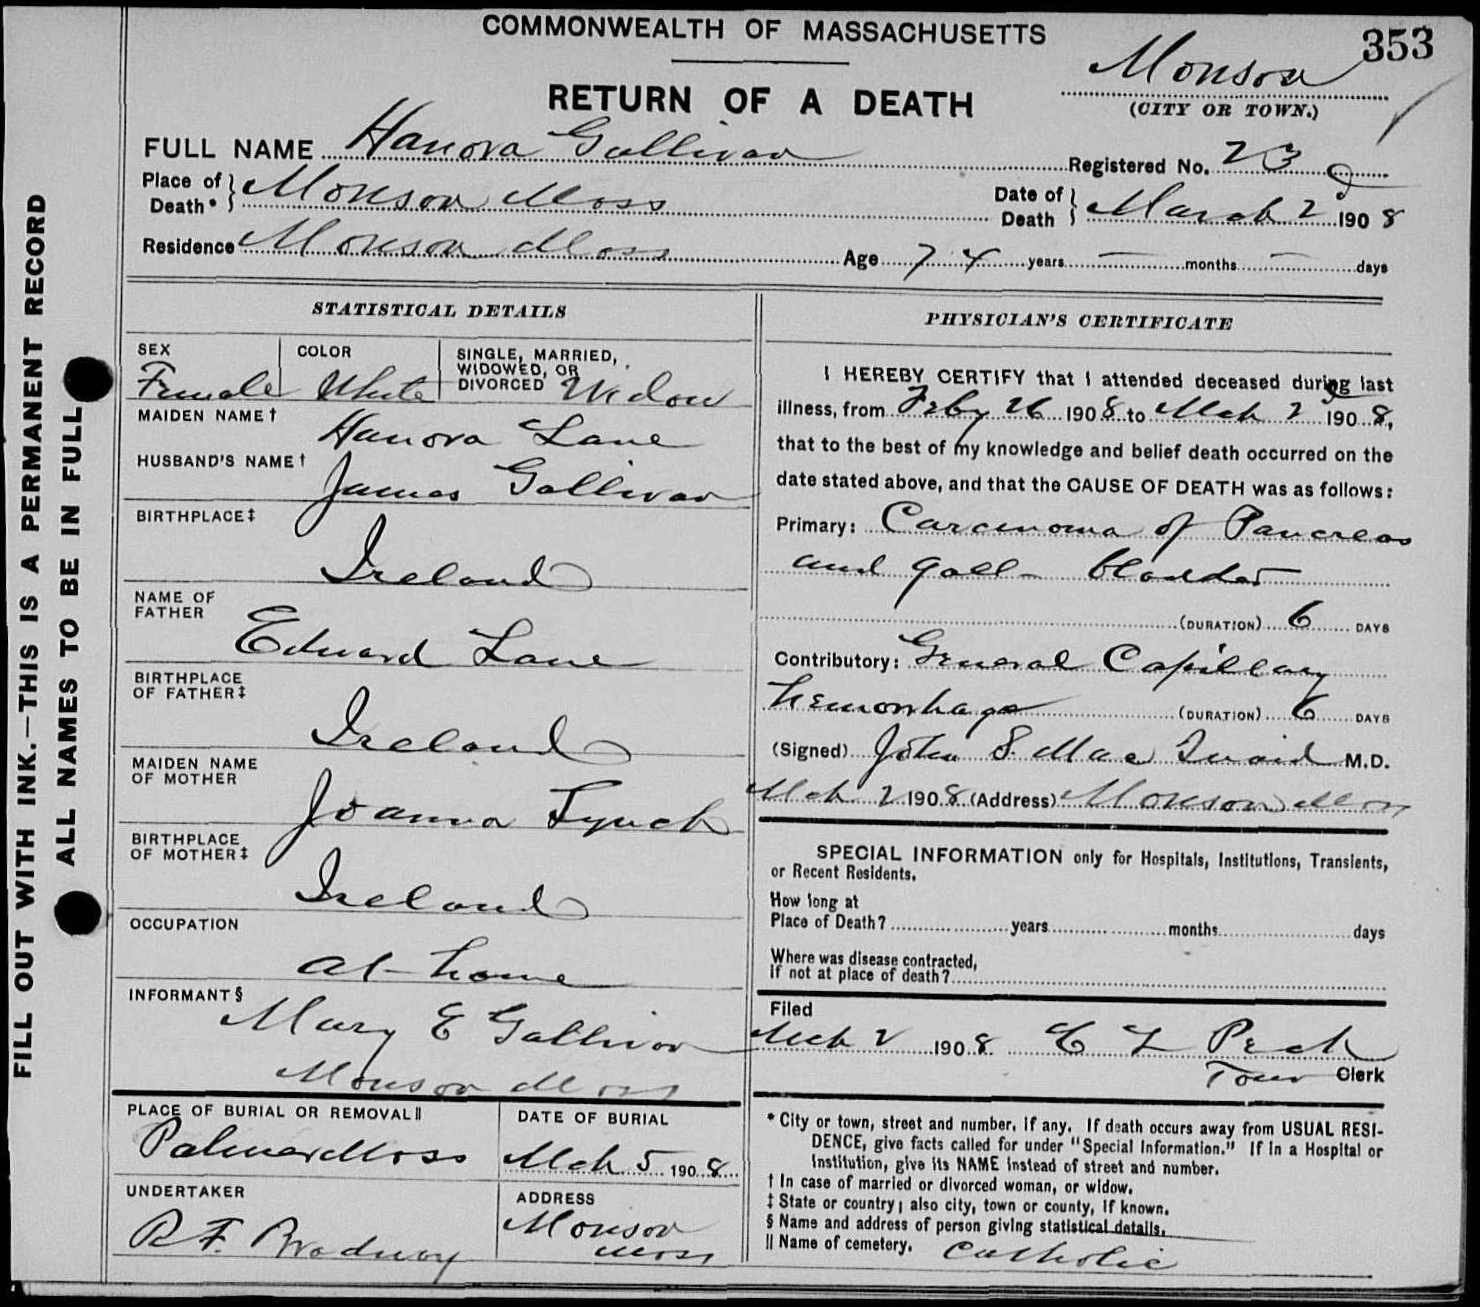 COMMONWEALTH OF MASSACHUSETTS
353
RETURN OF A DEATH
Monson
(CITY OR TOWN.)
FULL NAME Hanora Gallivan
Registered No. 23
Place of Death* Monson Mass
Date of Death March 2 1908
Residence Monson Mass
Age 74 years — months — days
FILL OUT WITH INK.—THIS IS A PERMANENT RECORD
ALL NAMES TO BE IN FULL
STATISTICAL DETAILS
SEX Female
COLOR White
SINGLE, MARRIED, WIDOWED, OR DIVORCED Widow
MAIDEN NAME† Hanora Lane
HUSBAND'S NAME† James Gallivan
BIRTHPLACE‡ Ireland
NAME OF FATHER Edward Lane
BIRTHPLACE OF FATHER‡ Ireland
MAIDEN NAME OF MOTHER Joanna Lynch
BIRTHPLACE OF MOTHER‡ Ireland
OCCUPATION at home
INFORMANT§ Mary E Gallivan
Monson Mass
PLACE OF BURIAL OR REMOVAL‖ Palmer Mass
DATE OF BURIAL Mch 5 1908
UNDERTAKER R F. Bradway
ADDRESS Monson Mass
PHYSICIAN'S CERTIFICATE
I HEREBY CERTIFY that I attended deceased during last
illness, from Feby 26 1908 to Mch 2 1908,
that to the best of my knowledge and belief death occurred on the
date stated above, and that the CAUSE OF DEATH was as follows:
Primary: Carcinoma of Pancreas
and gall-bladder
(DURATION) 6 DAYS
Contributory: General Capillary
hemorrhage (DURATION) 6 DAYS
(Signed) John S. Mac Quaid M.D.
Mch 2 1908 (Address) Monson Mass
SPECIAL INFORMATION only for Hospitals, Institutions, Transients,
or Recent Residents.
How long at
Place of Death? years months days
Where was disease contracted,
if not at place of death?
Filed
Mch 2 1908 E L Peck
Town Clerk
* City or town, street and number, if any. If death occurs away from USUAL RESI-
DENCE, give facts called for under "Special Information." If in a Hospital or
Institution, give its NAME instead of street and number.
† In case of married or divorced woman, or widow.
‡ State or country; also city, town or county, if known.
§ Name and address of person giving statistical details.
‖ Name of cemetery. Catholic